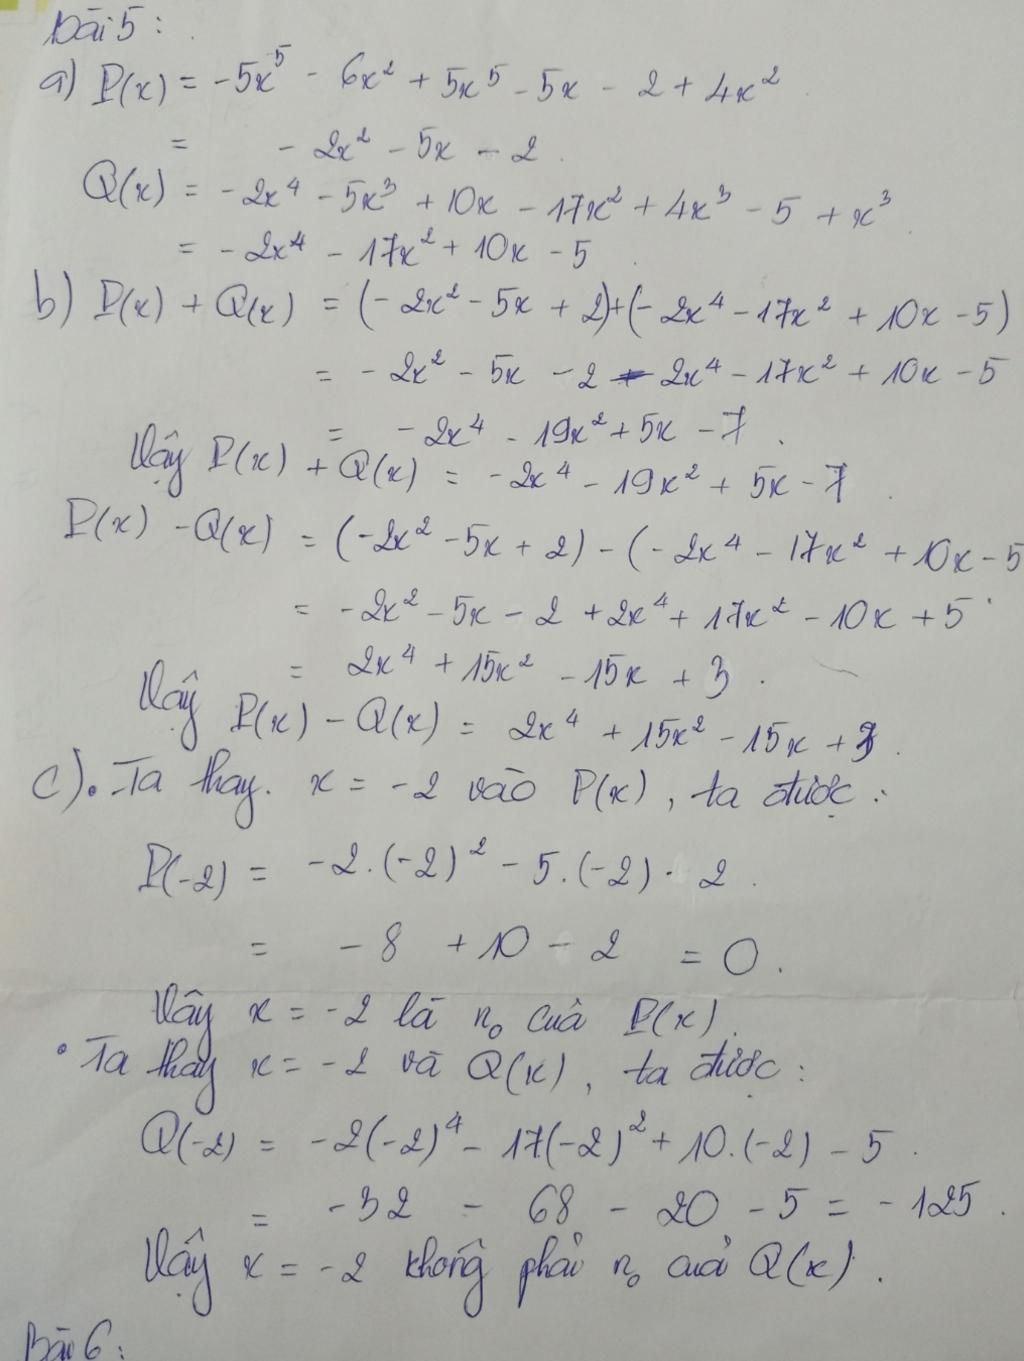 Bài 5:
a) P(x) = -5x⁵ - 6x² + 5x⁵ - 5x - 2 + 4x²
= - 2x² - 5x - 2.
Q(x) = -2x⁴ - 5x³ + 10x - 17x² + 4x³ - 5 + x³
= -2x⁴ - 17x² + 10x - 5.
b) P(x) + Q(x) = (-2x² - 5x + 2)+(-2x⁴ - 17x² + 10x - 5)
= -2x² - 5x - 2 - 2x⁴ - 17x² + 10x - 5
= -2x⁴ - 19x² + 5x - 7.
Vậy P(x) + Q(x) = -2x⁴ - 19x² + 5x - 7.
P(x) - Q(x) = (-2x² - 5x + 2) - (-2x⁴ - 17x² + 10x - 5
= -2x² - 5x - 2 + 2x⁴ + 17x² - 10x + 5
= 2x⁴ + 15x² - 15x + 3.
Vậy P(x) - Q(x) = 2x⁴ + 15x² - 15x + 3.
c). Ta thay. x = -2 vào P(x), ta được:
P(-2) = -2.(-2)² - 5.(-2) - 2.
= -8 + 10 - 2 = 0.
Vậy x = -2 là n₀ của P(x).
• Ta thay x = -2 và Q(x), ta được:
Q(-2) = -2(-2)⁴ - 17(-2)² + 10.(-2) - 5.
= -32 - 68 - 20 - 5 = -125.
Vậy x = -2 không phải n₀ của Q(x).
Bài 6: